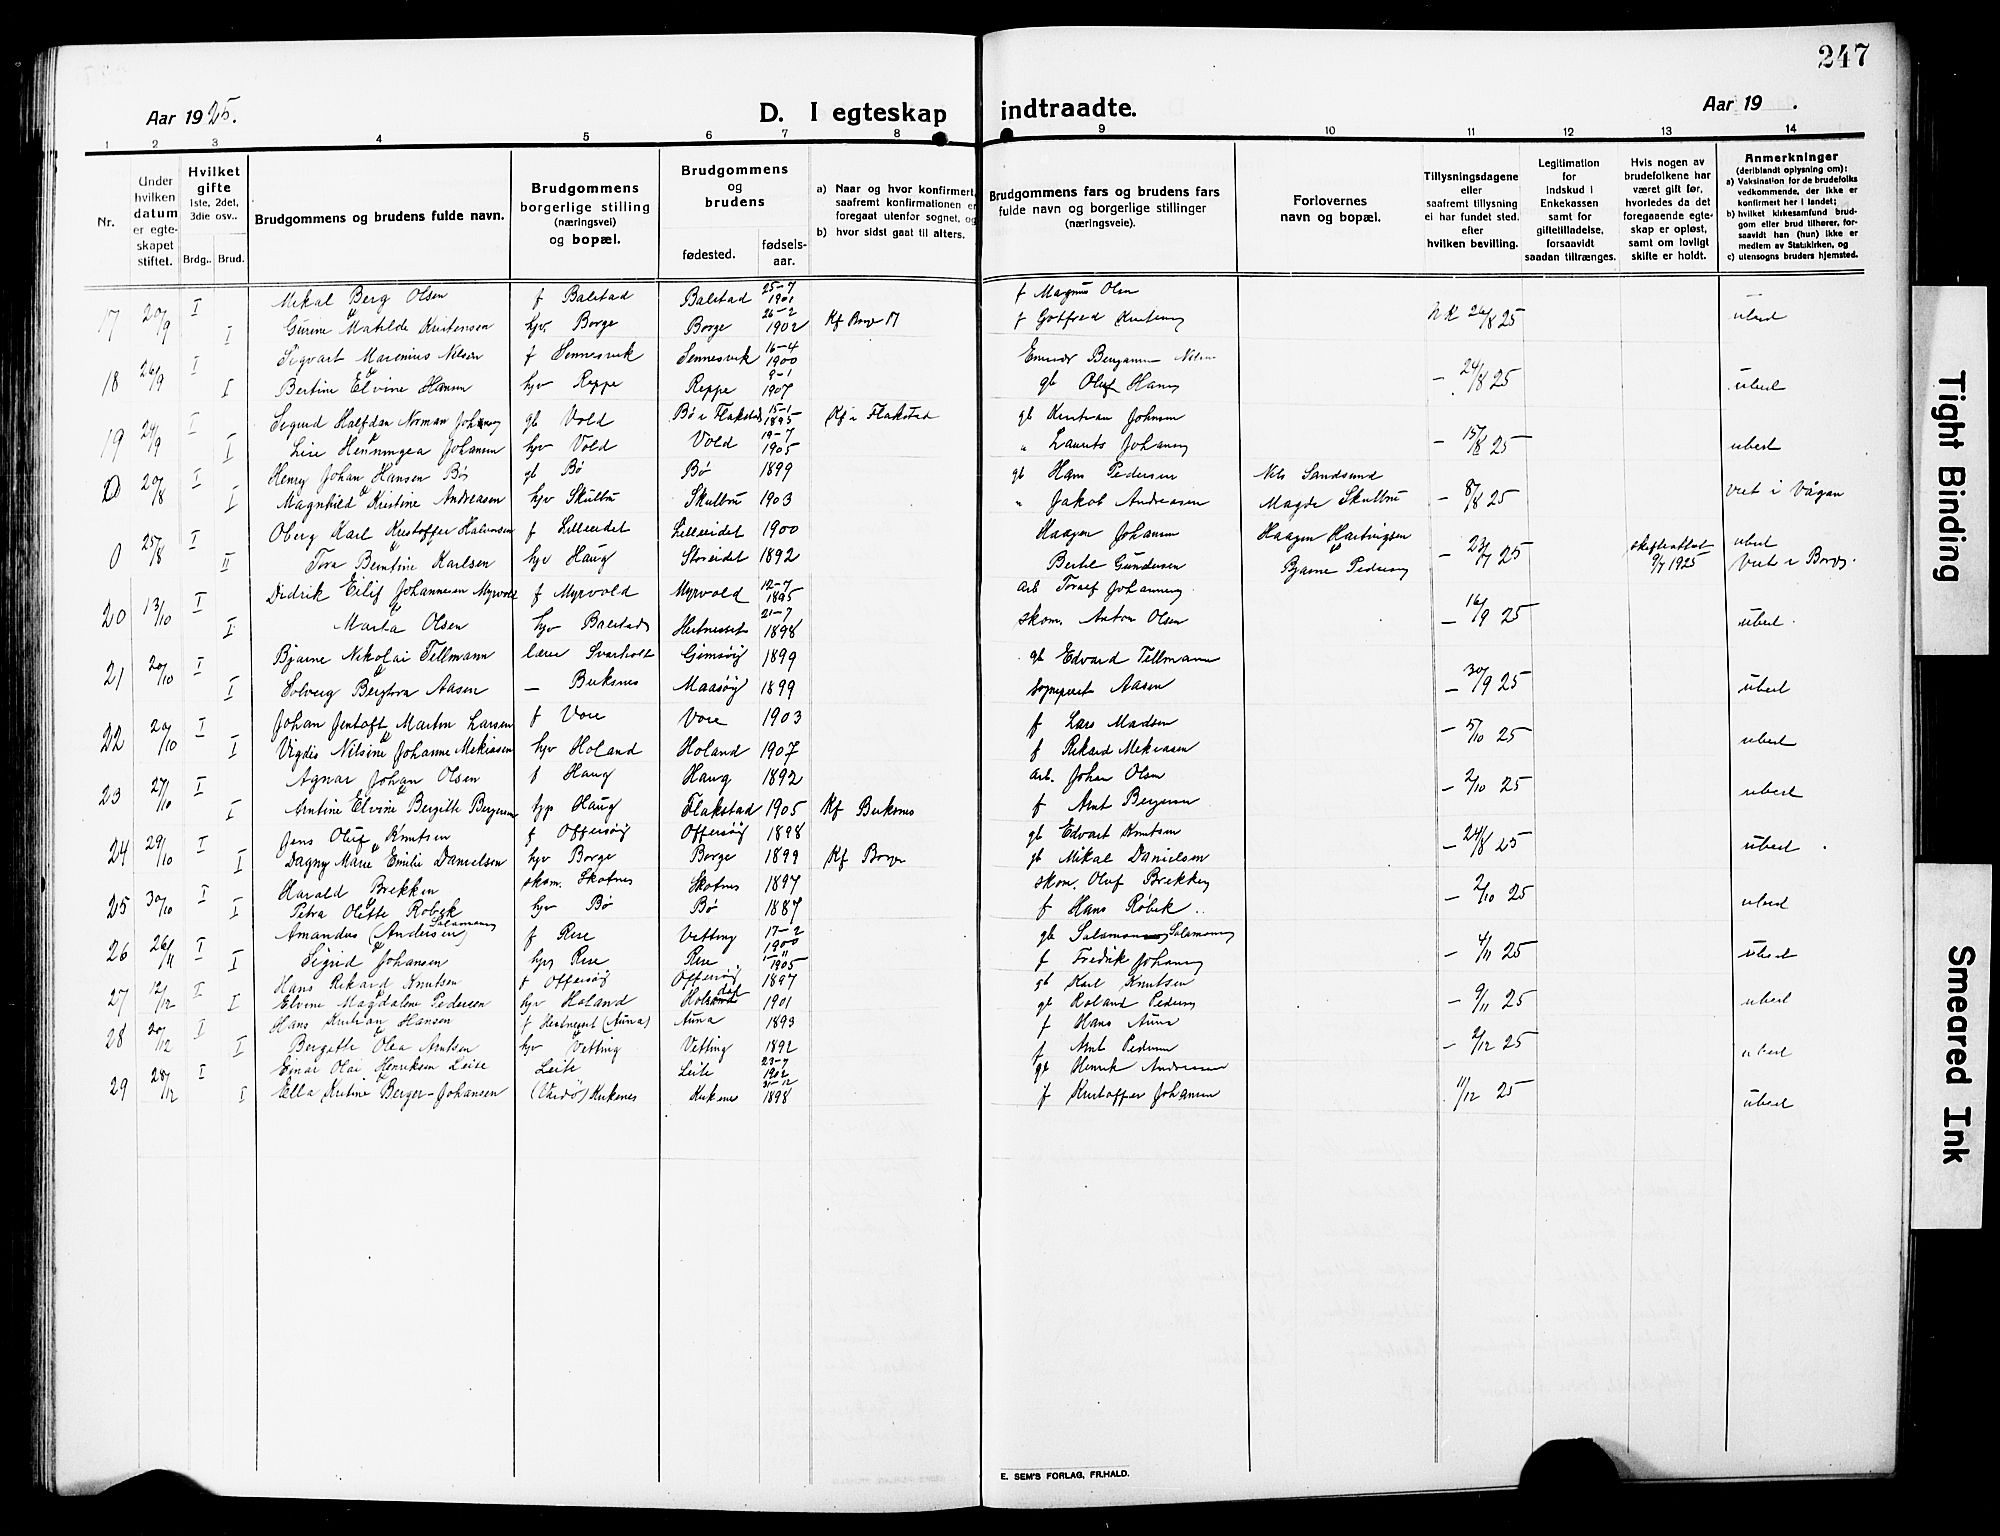 247
Aar 1925.
D. I egteskap indtraadte.
Aar 19 .
1 2 3 4 5 6 7 8 9 10 11 12 13 14
Nr.
Under hvilken datum er egteskapet stiftet.
Hvilket gifte 1ste, 2det, 3die osv..
Brdg.. Brud.
Brudgommens og brudens fulde navn.
Brudgommens borgerlige stilling (næringsvei) og bopæl.
Brudgommens og brudens
fødested.
fødsels-aar.
a) Naar og hvor konfirmert, saafremt konfirmationen er foregaat utenfor sognet, og
b) hvor sidst gaat til alters.
Brudgommens fars og brudens fars fulde navn og borgerlige stillinger (næringsveie).
Forlovernes navn og bopæl.
Tillysningsdagene eller saafremt tillysning ei har fundet sted. efter hvilken bevilling.
Legitimation for indskud i Enkekassen samt for giftetilladelse, forsaavidt saadan tiltrænges.
Hvis nogen av brudefolkene har været gift før, hvorledes da det foregaaende egteskap er opløst, samt om lovligt skifte er holdt.
Anmerkninger (deriblandt oplysning om):
a) Vaksination for de brudefolks vedkommende, der ikke er konfirmert her i landet;
b) hvilket kirkesamfund brudgom eller brud tilhører, forsaavidt han (hun) ikke er medlem av Statskirken, og
c) utensogns bruders hjemsted.
17 20/9 I Mikal Berg Olsen f Balstad Balstad 25-7 1901 f Magnus Olsen 26/8 25 ubesl
I Gurine Matilde Kristensen hjv Borge Borge 26-2 1902 Kf Borge f Gotfred
18 26/9 I Sigvart Marenius Nilsen f Sennesvik Sennesvik 16-4 1900 Benjamin Nilsen - 24/8 25 ubesl
I Bertine Elvine Hansen hjv Reppe Reppe 9-1 1907 gb Oluf Hansen
19 24/9 I Sigurd Halfdan Norman Johnsen gb Vold Bø i Flakstad 15-1 1895 Kf i Flakstad gb Kristian Johnsen - 15/8 25 ubesl
I Lise Henningea Johansen hjv Vold Vold 19-7 1905 " Laurits Johansen
0 20/8 I Henry Johan Hansen Bø gb Bø Bø 1899 gb Hans Pedersen Nils Sandsund - 8/8 25 viet i Vågan
I Magnhild Kristine Andreasen hjv Skulbru Skulbru 1903 " Jakob Andreasen Magde Skulbru
0 25/8 I Oberg Karl Kristoffer Halvorsen f Lilleeidet Lilleeidet 1900 Haagen Johansen Haagen Hartvigsen - 23/7 25 skifteattest 9/7 1925 ubesl
II Tora Berntine Karlsen hjv Haug Storeidet 1892 Bertil Gundersen Bjarne Pedersen Viet i Borge.
20 13/10 I Didrik Eilif Johannesen Myrvold f Myrvold Myrvold 12-7 1895 arb Toralf Johannesen - 16/9 25 ubesl.
I Marta Olsen hjv Balstad Hertneset 21-7 1898 skom. Anton Olsen
21 20/10 I Bjarne Nikolai Tellmann lærer Svarholt Gimsøy 1899 gb Edvard Tellmann - 30/9 25 ubesl
I Solveig Bergtora Aasen - Buksnes Maasøy 1899 Sogneprest Aasen
22 20/10 I Johan Jentoft Martin Larsen f Vore Vore 1903 f Lars Madsen - 5/10 25 ubesl
I Vigdis Nilsine Johanne Mekiasen hjv Holand Holand 1907 f Rikard Mekiasen
23 27/10 I Agnar Johan Olsen f Haug Haug 1892 arb. Johan Olsen - 2/10 25 ubesl
I Antine Elvine Bergitte Bergersen hjp Haug Flakstad 1905 Kf Buksnes f Arnt Bergersen
24 29/10 I Jens Oluf Knutsen f Offersøy Offersøy 1898 gb Edvart Knutsen - 24/8 25 ubesl.
I Dagny Marie Emilie Danielsen hjv Borge Borge 1899 Kf Borge gb Mikal Danielsen
25 30/10 I Harald Brekken skom. Skotnes Skotnes 1897 skom. Oluf Brekken - 2/10 25 ubesl
I Petra Olette Robek hjv Bø Bø 1887 f Hans Røbek
26 26/11 I Amandus (Andersen) Salamonsen f Rise Vetting 17-2 1900 gb Salamon Salamonsen - 4/11 25 ubesl
I Sigrid Johansen hjv Rise Rise 1-11 1905 f Fredrik Johansen
27 12/12 I Hans Rikard Knutsen f Offersøy Offersøy 1897 gb Karl Knutsen - 9/11 25 ubesl
I Elvine Magdalene Pedersen hjv Holand 1901 gb Roland Pedersen
28 20/12 I Hans Kristian Hansen f Hertneset (Auna) Auna 1893 f Hans Auna - 2/12 25 ubesl
I Bergitte Olea Arntsen hjv Vetting Vetting 1892 f Arnt Pedersen
29 28/12 I Einar Olai Henriksen Leite Leite Leite 23-7 1902 gb Henrik Andreasen 11/12 25 ubesl
I Ella Kristine Berger-Johansen (Vardø) Kirkenes Kirkenes 31-12 1898 f Kristoffer Johansen
E. SEM'S FORLAG, FR.HALD.
Tight Binding
Smeared Ink